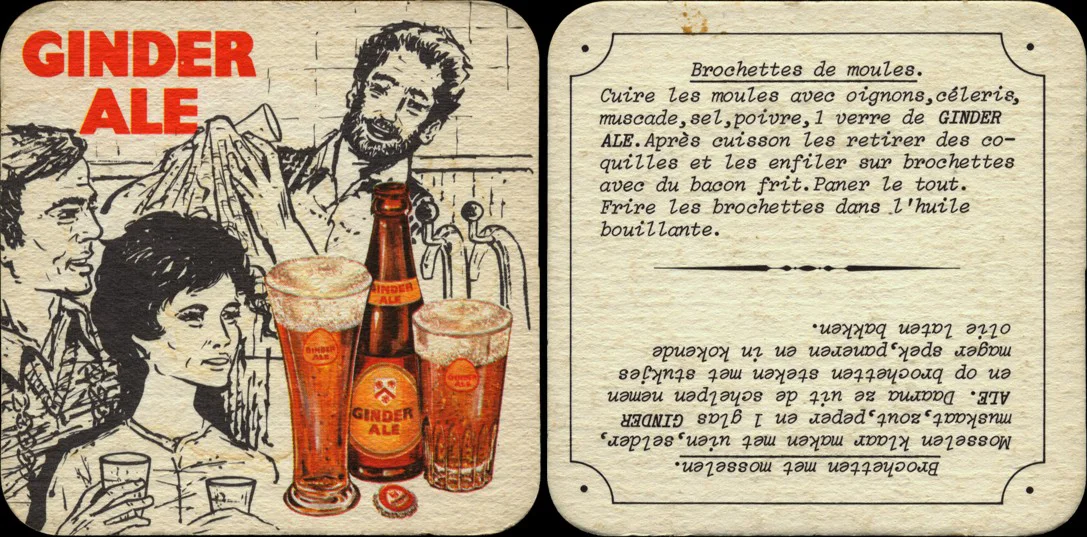 GINDER
ALE
GINDER
ALE
GINDER
ALE
GINDER
ALE
GINDER
ALE
Brochettes de moules.
Cuire les moules avec oignons,céleris,
muscade,sel,poivre,1 verre de GINDER
ALE.Après cuisson les retirer des co-
quilles et les enfiler sur brochettes
avec du bacon frit.Paner le tout.
Frire les brochettes dans l'huile
bouillante.
Brochetten met mosselen.
Mosselen klaar maken met uien,selder,
muskaat,zout,peper en 1 glas GINDER
ALE. Daarna ze uit de schelpen nemen
en op brochetten steken met stukjes
mager spek,paneren en in kokende
olie laten bakken.